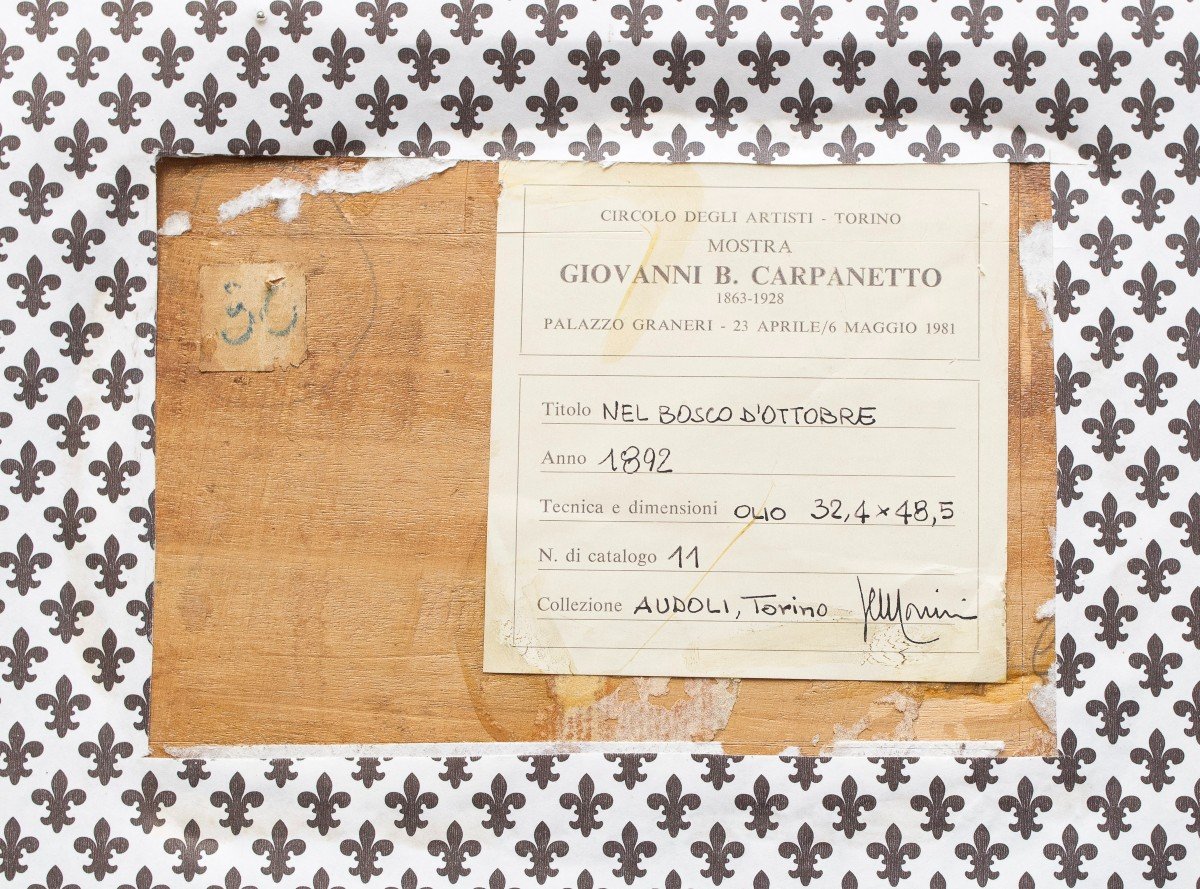 CIRCOLO DEGLI ARTISTI - TORINO
MOSTRA
GIOVANNI B. CARPANETTO
1863-1928
PALAZZO GRANERI - 23 APRILE/6 MAGGIO 1981
Titolo NEL BOSCO D'OTTOBRE
Anno 1892
Tecnica e dimensioni OLIO 32,4 × 48,5
N. di catalogo 11
Collezione AUDOLI, Torino